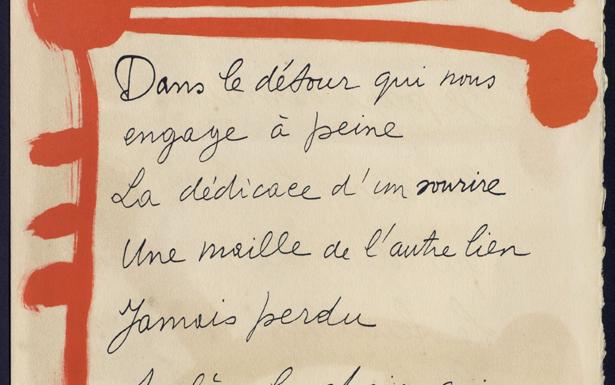 Dans le détour qui nous
engage à peine
La dédicace d'un sourire
Une maille de l'autre lien
Jamais perdu